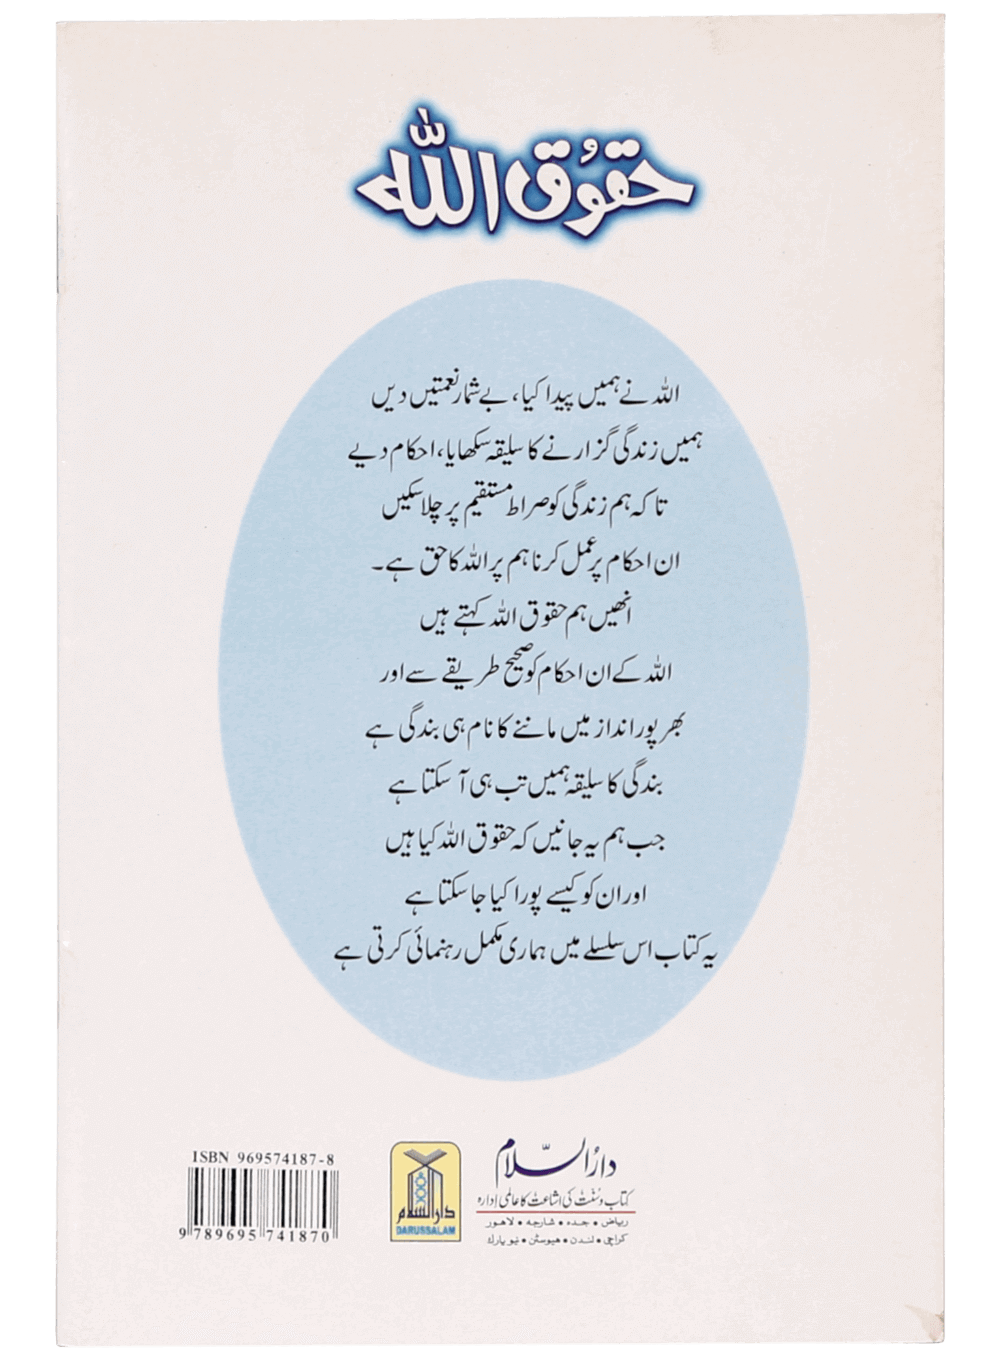 حقوق اللہ
اللہ نے ہمیں پیدا کیا، بے شمار نعمتیں دیں
ہمیں زندگی گزارنے کا سلیقہ سکھایا، احکام دیے
تاکہ ہم زندگی کو صراط مستقیم پر چلا سکیں
ان احکام پر عمل کرنا ہم پر اللہ کا حق ہے۔
انھیں ہم حقوق اللہ کہتے ہیں
اللہ کے ان احکام کو صحیح طریقے سے اور
بھرپور انداز میں ماننے کا نام ہی بندگی ہے
بندگی کا سلیقہ ہمیں تب ہی آ سکتا ہے
جب ہم یہ جانیں کہ حقوق اللہ کیا ہیں
اور ان کو کیسے پورا کیا جا سکتا ہے
یہ کتاب اس سلسلے میں ہماری مکمل رہنمائی کرتی ہے
دارُالسّلام
کتاب و سنت کی اشاعت کا عالمی ادارہ
ریاض • جدہ • شارجہ • لاہور
کراچی • لندن • ہیوسٹن • نیو یارک
دارالسلام
DARUSSALAM
ISBN 969574187-8
9 789695 741870